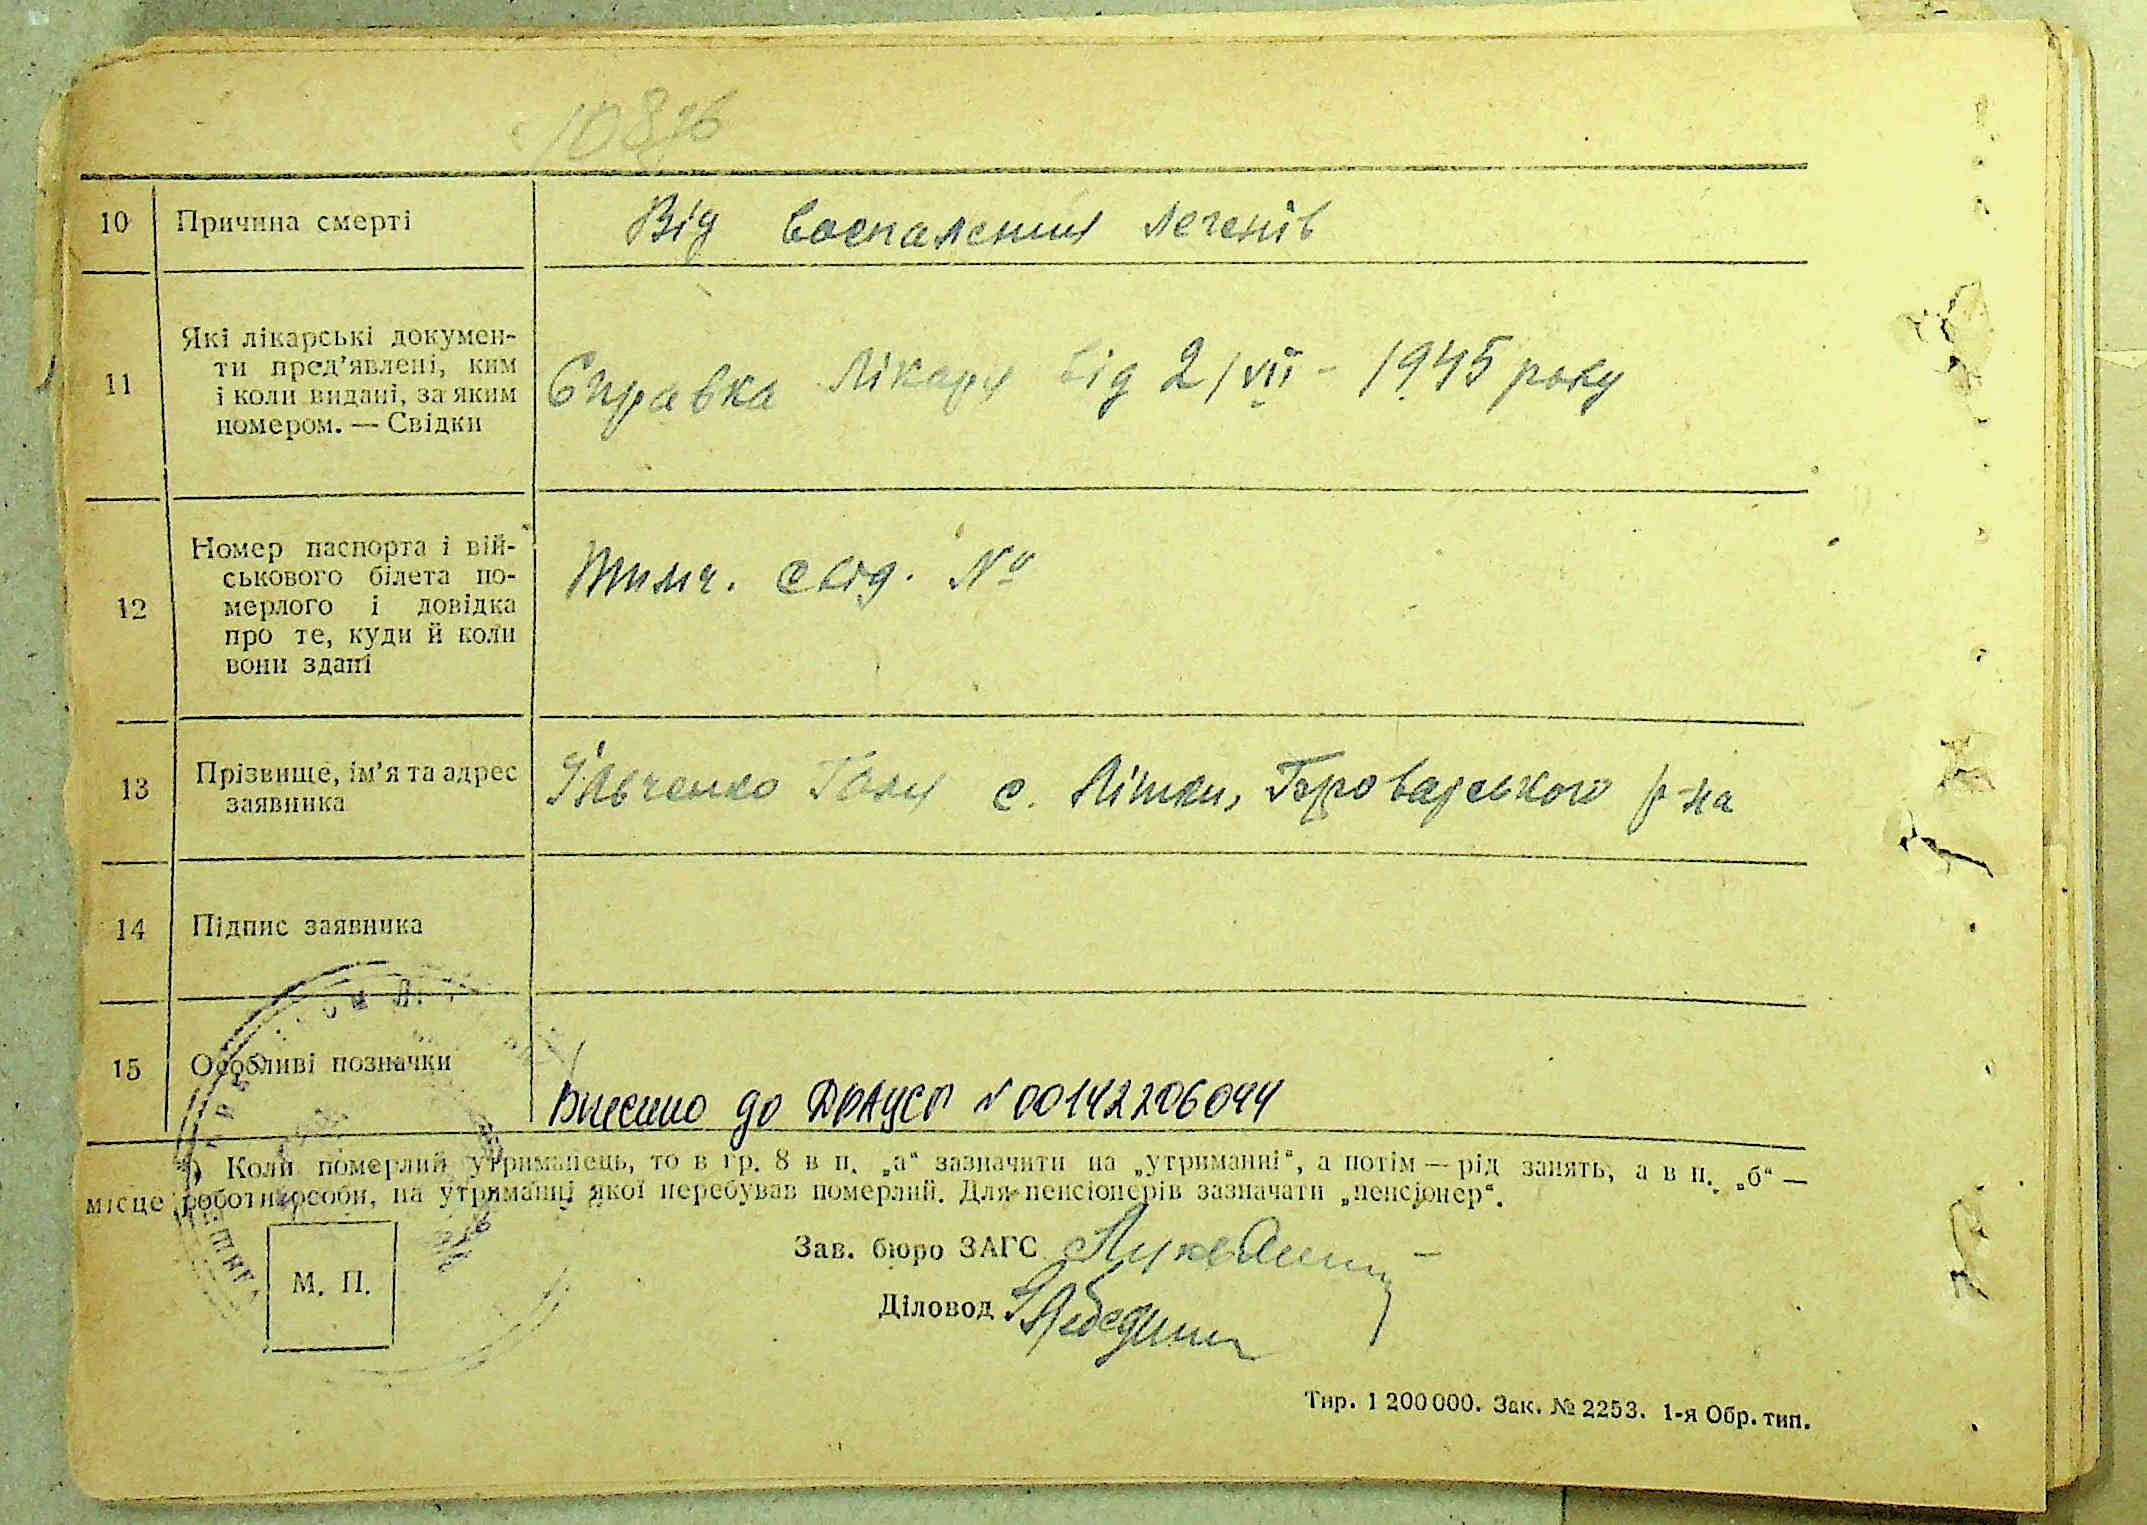 10 Причина смерті Від воспаления легенів
11 Які лікарські докумен-
ти пред’явлені, ким
і коли видані, за яким
номером. — Свідки
Справка Лікаря від 2/VII - 1945 року
12 Номер паспорта і вій-
ськового білета по-
мерлого і довідка
про те, куди й коли
вони здані
Тимч. свід. №
13 Прізвище, ім’я та адрес
заявника
Ільченко Галя с. Літки, Броварського р-на
14 Підпис заявника
15 Особливі позначки
Внесено до ДРАЦСГ №00142206044
) Коли померлий утриманець, то в гр. 8 в п. „а“ зазначити на „утриманні“, а потім — рід занять, а в п. „б“ —
місце роботи особи, на утриманні якої перебував померлий. Для пенсіонерів зазначати „пенсіонер“.
Зав. бюро ЗАГС
М. П.
Діловод
Тир. 1 200 000. Зак. № 2253. 1-я Обр. тип.